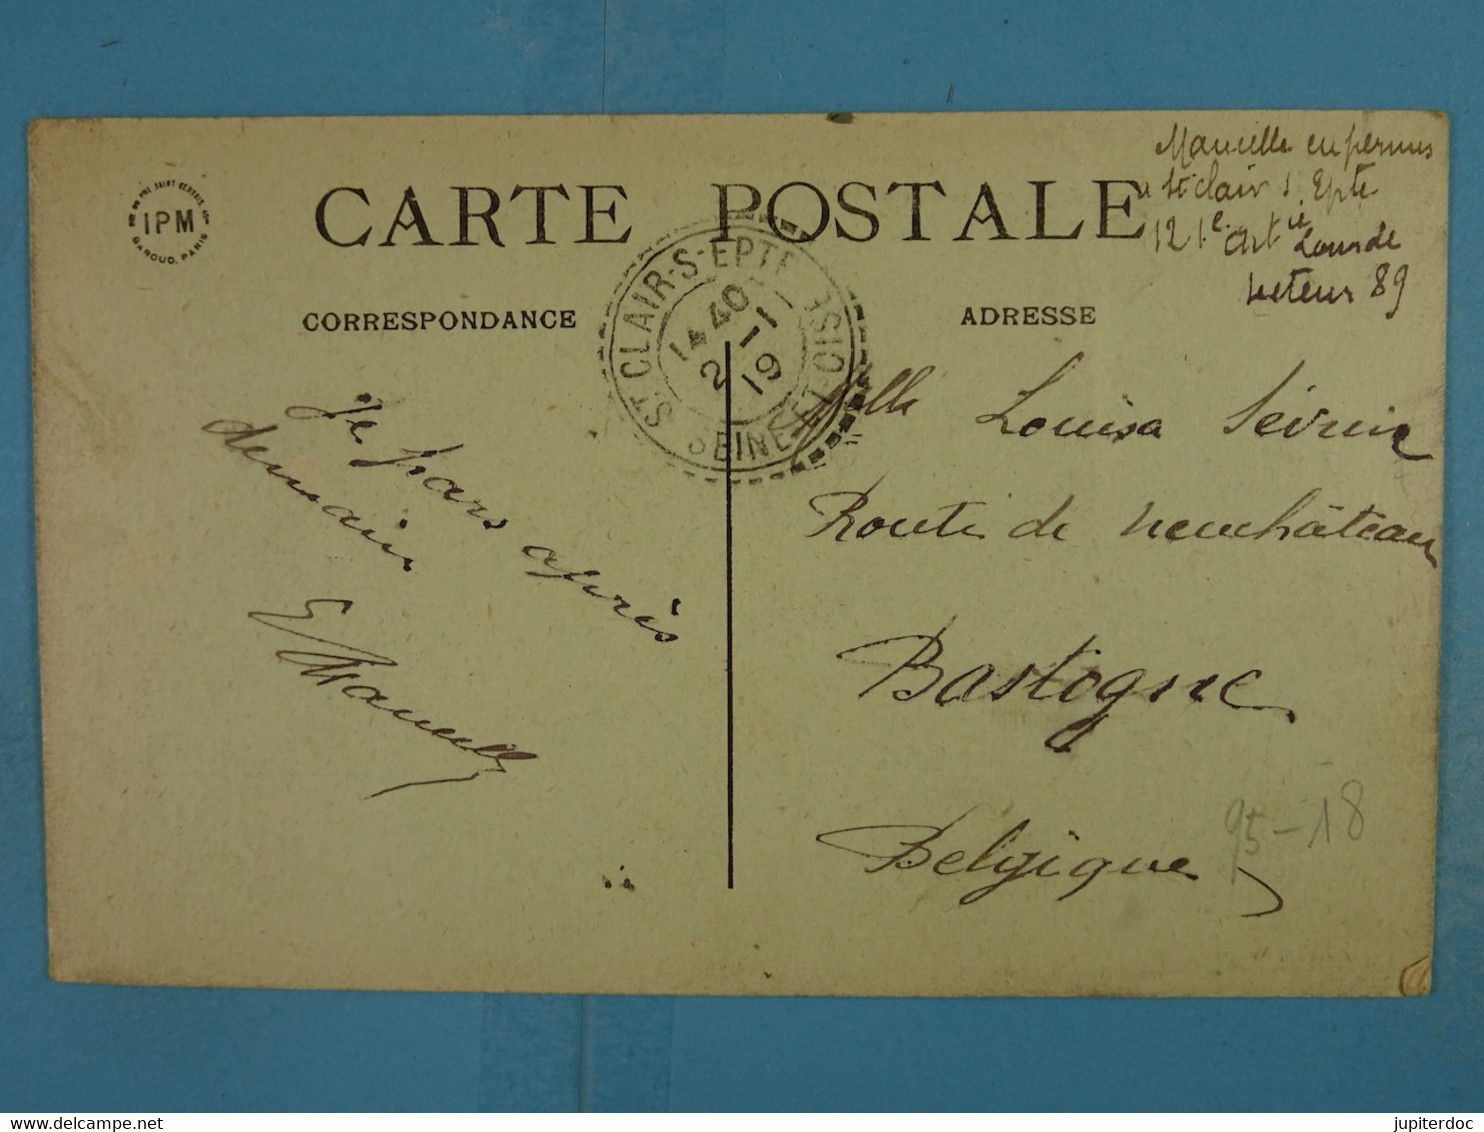 IPM
GAROUD. PARIS
CARTE POSTALE
CORRESPONDANCE
ADRESSE
Manuelle en permis
a St Clair s. Epte
121e Artie Lourde
secteur 89
ST CLAIR-S-EPTE
14 40
2 - 1
19
SEINE-ET-OISE
Je pars après
demain
E Manuelle
Mlle Louisa Sévrin
Route de neuchâteau
Bastogne
Belgique
95-18
delcampe.net
jupiterdoc